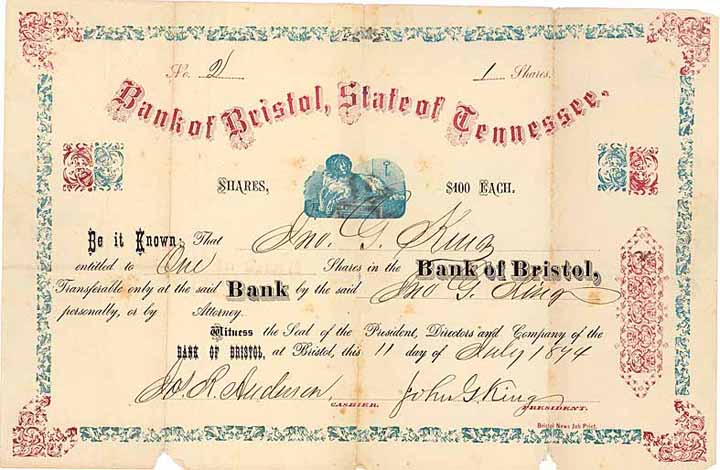 No. 2 1 Shares.
Bank of Bristol, State of Tennessee.
SHARES, $100 EACH.
Be it Known: That Jno. G. King
entitled to One Shares in the Bank of Bristol,
Transferable only at the said Bank by the said Jno G. King
personally, or by Attorney.
Witness the Seal of the President, Directors and Company of the
BANK OF BRISTOL, at Bristol, this 11 day of July 1874
Jos R. Anderson. John G. King
CASHIER. PRESIDENT.
Bristol News Job Print.